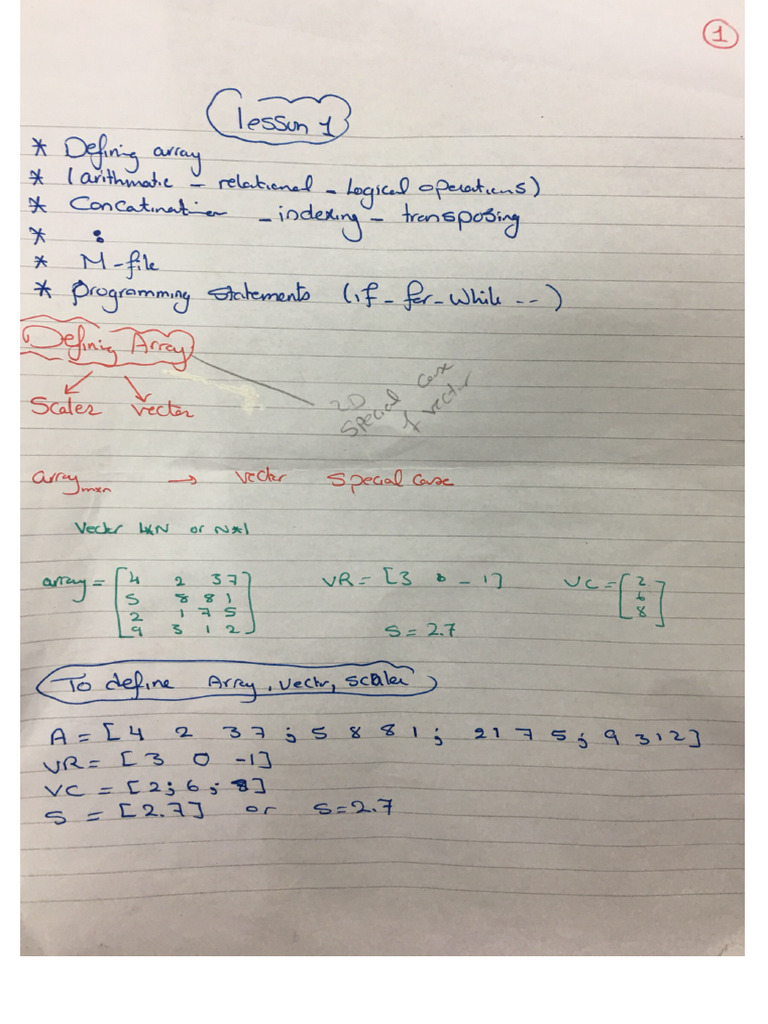 1
lesson 1
* Defining array
* (arithmatic - relational - Logical operations)
* Concatination - indexing - transposing
* :
* M-file
* Programming statements (if - for - while --)
Defining Array
Scaler vector
2D
special case
of vector
array mxn → vector special case
Vector 1*N or N*1
array = [4 2 3 7
5 8 8 1
2 1 7 5
9 3 1 2]
VR = [3 0 -1]
VC = [2
6
8]
S = 2.7
To define Array, vector, scaler
A = [4 2 3 7 ; 5 8 8 1 ; 2 1 7 5 ; 9 3 1 2]
VR = [3 0 -1]
VC = [2 ; 6 ; 8]
S = [2.7] or S = 2.7